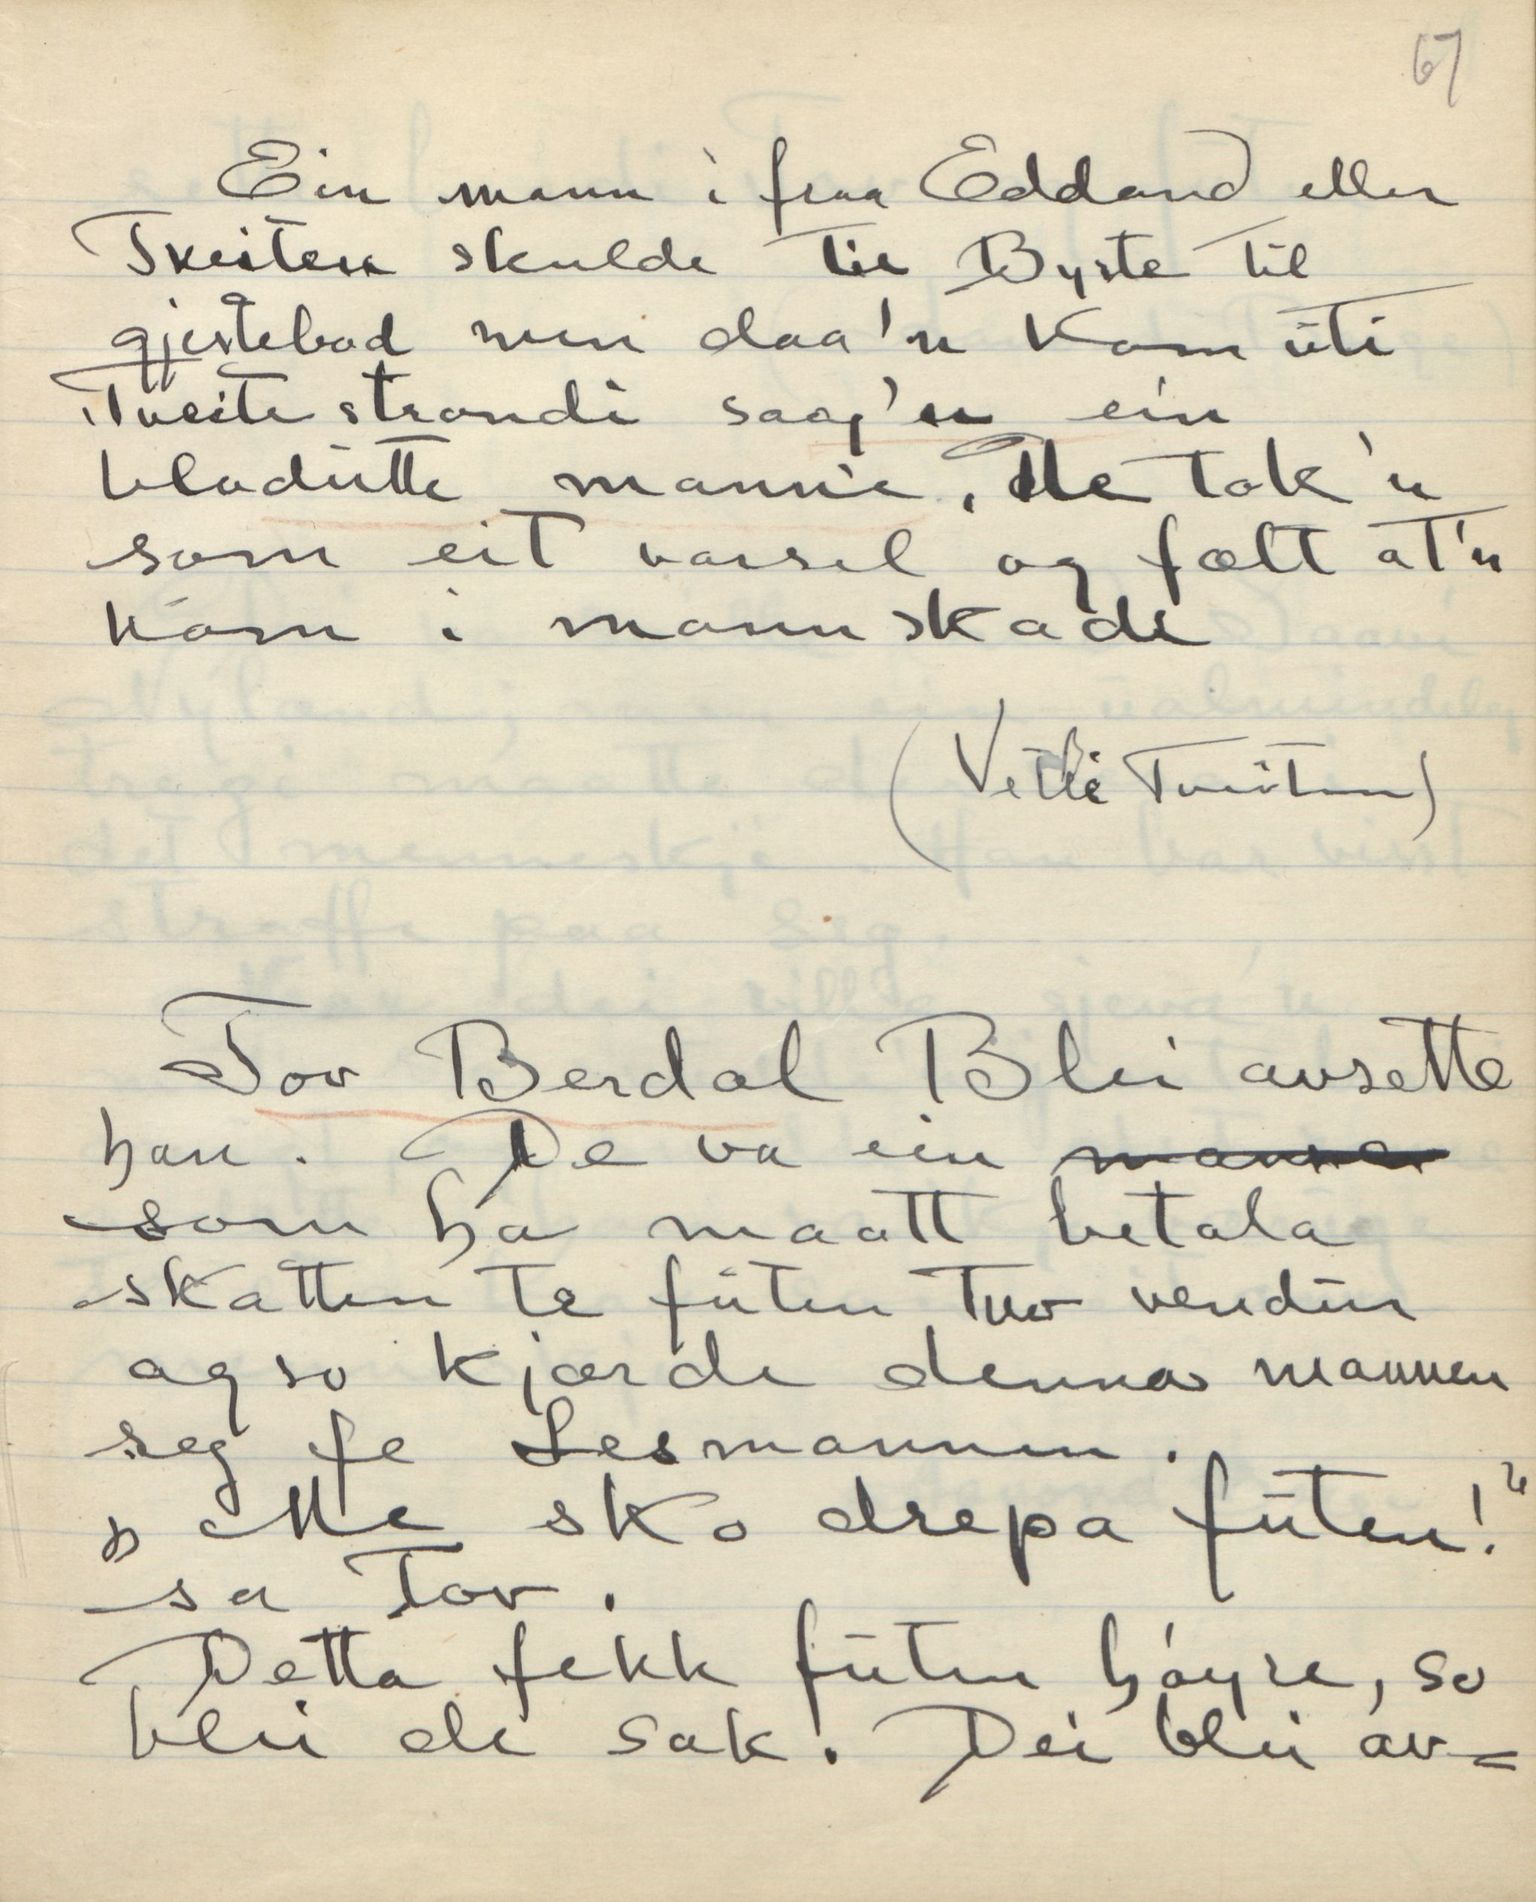 67
Ein mann i fraa Eddand eller
Tveiten skulde til Byrte til
gjestebod men daa'n kom üti
Tveitestrandi saag'n ein
blodütte mannie. De tok'n
som eit varsel og fælt at'n
kom i mannskade
(Vetle Tveiten)
Tov Berdal Blei avsette
han. De va ein
som ha maatt betala
skatten te füten tvo vendür
og so kjærde denna mannen
seg fe Lesmannen.
„Me sko drepa füten!"
sa Tov.
Detta fekk füten høyre, so
blei de sak. Dei blei av=